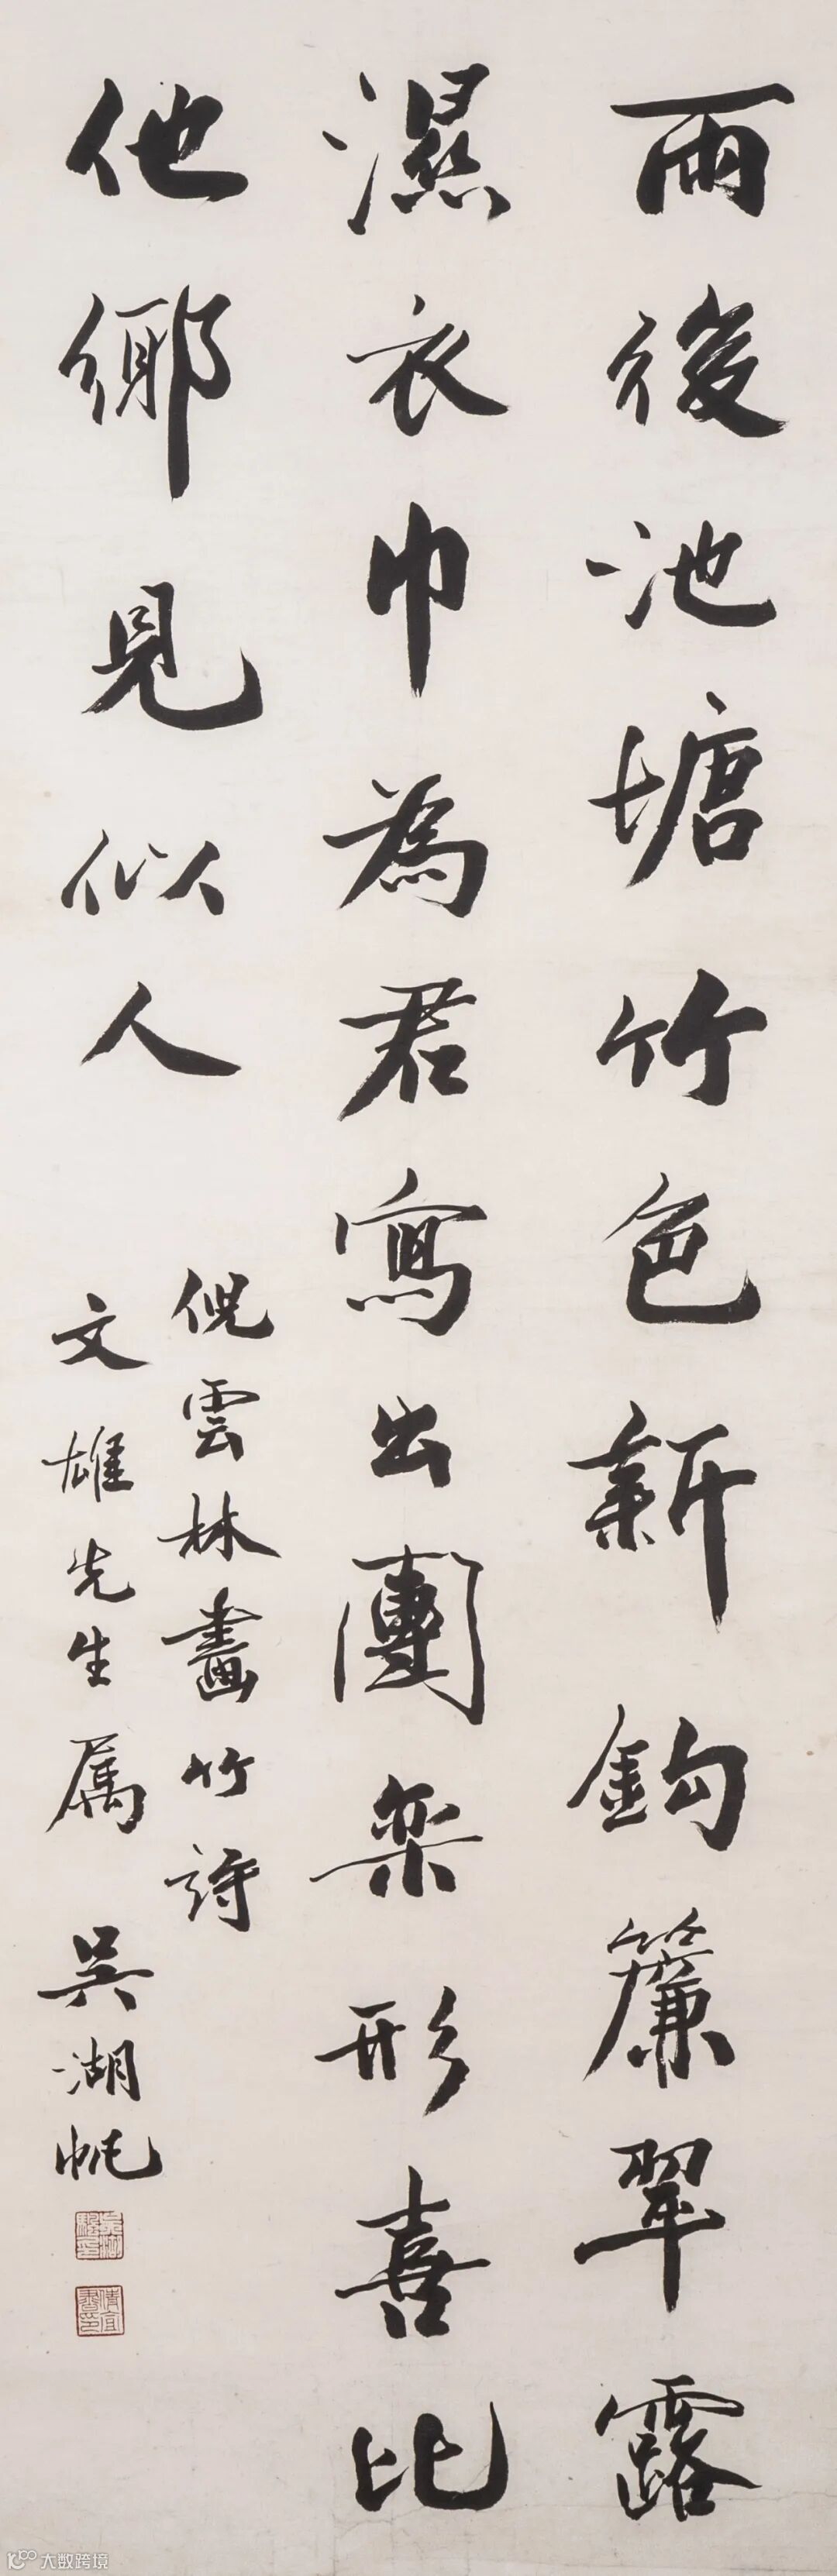 雨後池塘竹色新鈎簾翠露
濕衣巾為君寫出團欒形喜比
他鄉見似人
倪雲林畫竹詩
文雄先生属 吳湖帆
大数跨境